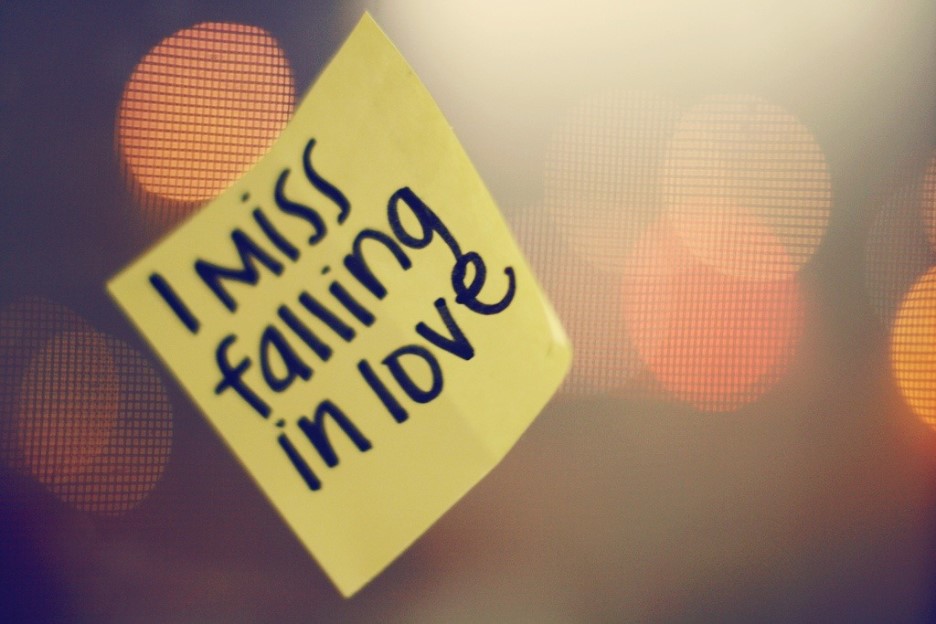 I MISS
falling
in love